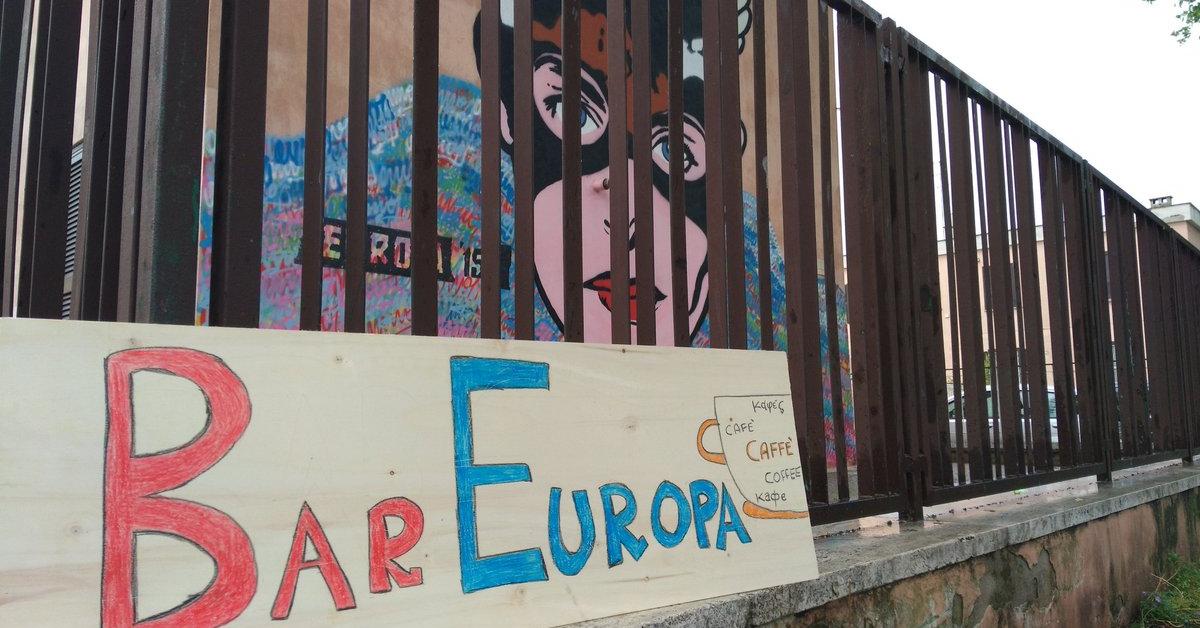 BAR EUROPA
καφές
CAFÈ
CAFFÈ
COFFEE
кафе